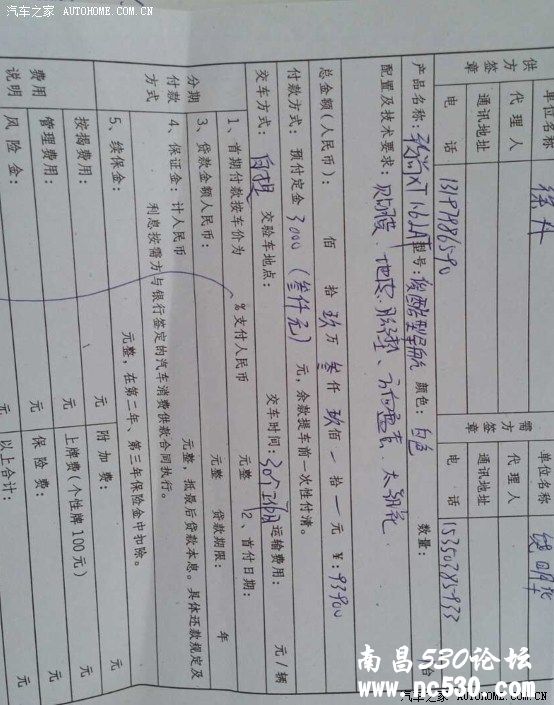 汽车之家 AUTOHOME.COM.CN
供方签章
单位名称
代理人
通讯地址
电 话 13197986590
需方签章
单位名称
代理人
通讯地址
电 话 15350385933
产品名称： XT 1.6L AT 型号： 俊酷型导航 颜色： 白色 数量： 台
配置及技术要求： 贝切膜、地忘、胶垫、方向盘套、太阳挡、
总金额（人民币）： 佰 拾 玖万 叁仟 玖佰 一拾 一元 ¥：93900
付款方式： 预付定金 3000（叁仟元） 元，余款提车前一次性付清。
交车方式： 自提 交验车地点： 交车时间：30个工作日 运输费用： 元/辆
分期付款方式
1、首期付款按车价为 %支付人民币 元整 2、首付日期：
3、贷款金额人民币： 元整 贷款期限： 年
4、保证金：计人民币 元整，抵最后贷款本息。具体还款规定及
利息按需方与银行签定的汽车消费供款合同执行。
5、续保金： 元整，在第二年、第三年保险金中扣除。
费用说明
按揭费用： 元 附加费： 元
管理费用： 元 上牌费（个性牌100元） 元
风险金： 元 保险费： 元
以上合计： 元
南昌530论坛
www.nc530.com
汽车之家 AUTOHOME.COM.CN